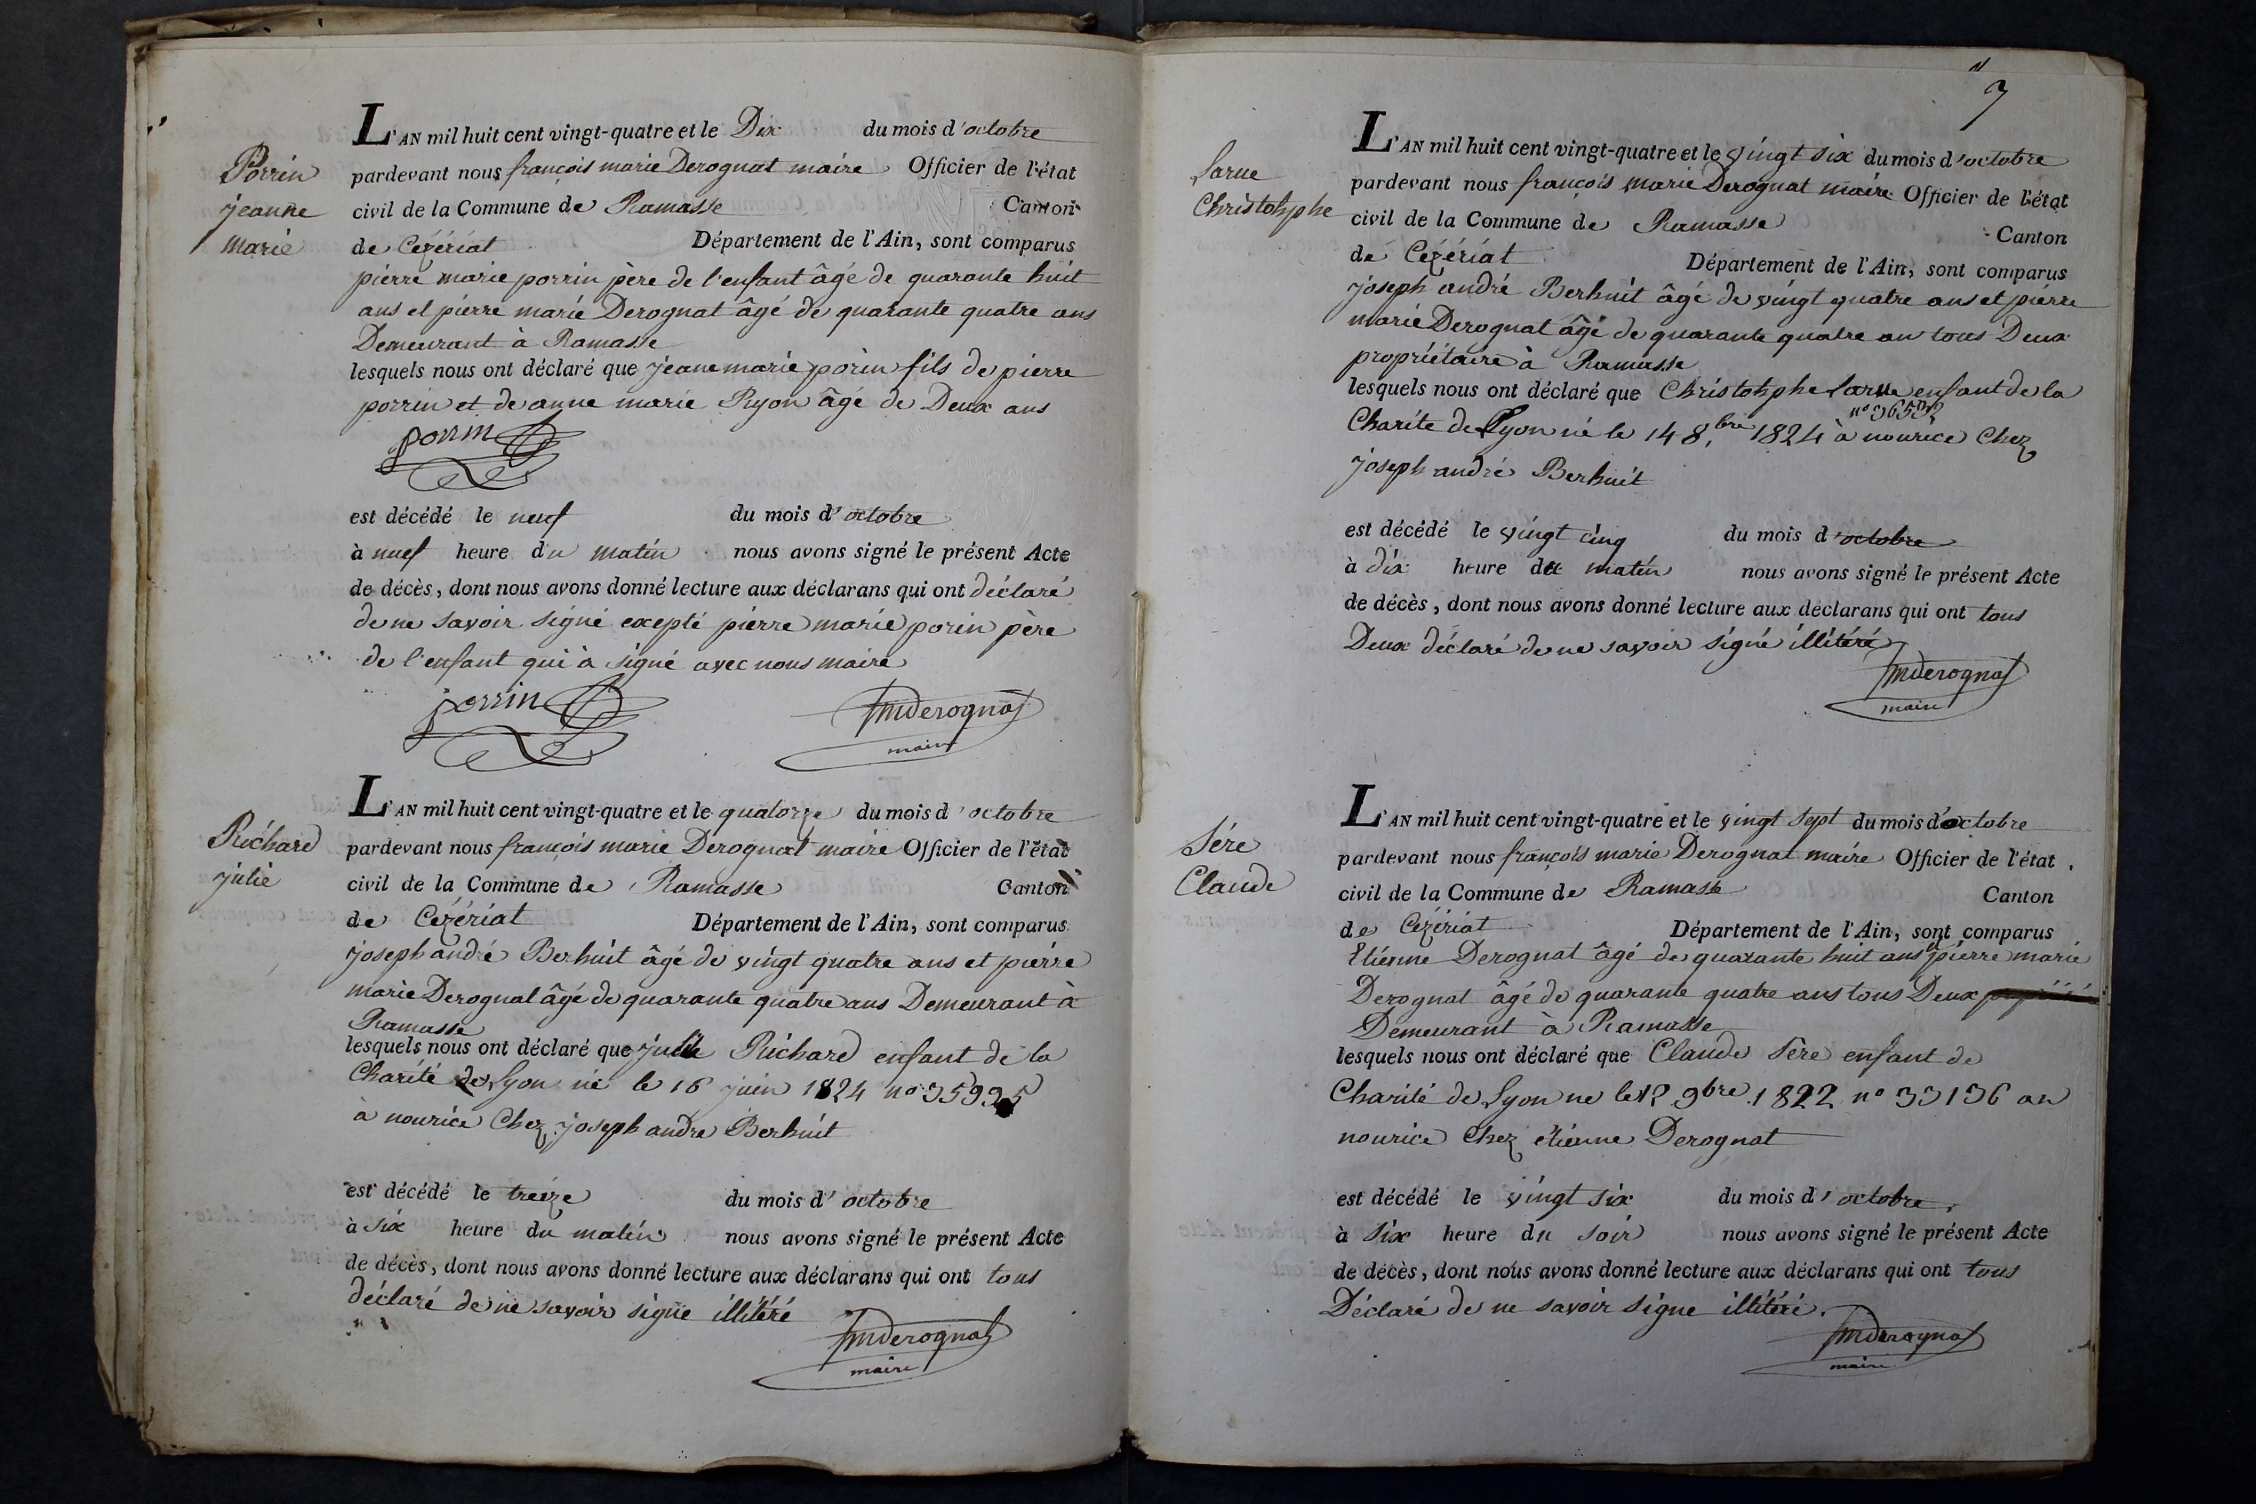 Porrin
jeanne
marie
L'AN mil huit cent vingt-quatre et le Dix du mois d'octobre
pardevant nous françois marie Derognat maire Officier de l'état
civil de la Commune de Ramasse Canton
de Cézériat Département de l'Ain, sont comparus
pierre marie porrin père de l'enfant âgé de quarante huit
ans et pierre marie Derognat âgé de quarante quatre ans
Demeurant à Ramasse
lesquels nous ont déclaré que jeane marie porin fils de pierre
porrin et de anne marie Ryon âgé de Deux ans
porrin
est décédé le neuf du mois d'octobre
à neuf heure du matin nous avons signé le présent Acte
de décès, dont nous avons donné lecture aux déclarans qui ont déclaré
de ne savoir signé excepté pierre marie porin père
de l'enfant qui à signé avec nous maire
porrin fmderognat
maire
Richard
julie
L'AN mil huit cent vingt-quatre et le quatorze du mois d'octobre
pardevant nous françois marie Derognat maire Officier de l'état
civil de la Commune de Ramasse Canton
de Cézériat Département de l'Ain, sont comparus
joseph andré Berhuit âgé de vingt quatre ans et pierre
marie Derognat âgé de quarante quatre ans Demeurant à
Ramasse
lesquels nous ont déclaré que julie Richard enfant de la
Charité de Lyon né le 16 juin 1824 n° 35935
à nourice Chez joseph andre Berhuit
est décédé le treize du mois d'octobre
à six heure du matin nous avons signé le présent Acte
de décès, dont nous avons donné lecture aux déclarans qui ont tous
déclaré de ne savoir signe illitéré
fmderognat
maire
7
Larue
Christohphe
L'AN mil huit cent vingt-quatre et le vingt six du mois d'octobre
pardevant nous françois marie Derognat maire Officier de l'état
civil de la Commune de Ramasse Canton
de Cézériat Département de l'Ain, sont comparus
joseph andré Berhuit âgé de vingt quatre ans et pierre
marie Derognat âgé de quarante quatre an tous Deux
propriétaire à Ramasse
lesquels nous ont déclaré que Christohphe Larue enfant de la
Charite de Lyon né le 14 8.bre 1824 à nourice Chez
joseph andré Berhuit
est décédé le vingt cinq du mois d'octobre
à dix heure du matin nous avons signé le présent Acte
de décès, dont nous avons donné lecture aux déclarans qui ont tous
Deux déclaré de ne savoir signé illitéré
fmderognat
maire
Sére
Claude
L'AN mil huit cent vingt-quatre et le vingt sept du mois d'octobre
pardevant nous françois marie Derognat maire Officier de l'état
civil de la Commune de Ramasse Canton
de Cézériat Département de l'Ain, sont comparus
Etienne Derognat âgé de quarante huit ans et pierre marie
Derognat âgé de quarante quatre ans tous Deux
Demeurant à Ramasse
lesquels nous ont déclaré que Claude Sère enfant de
Charité de Lyon ne le 12 9bre 1822 n° 33136 an
nourice chez étienne Derognat
est décédé le vingt six du mois d'octobre
à six heure du soir nous avons signé le présent Acte
de décès, dont nous avons donné lecture aux déclarans qui ont tous
Déclaré de ne savoir signe illitéré.
fmderognat
maire